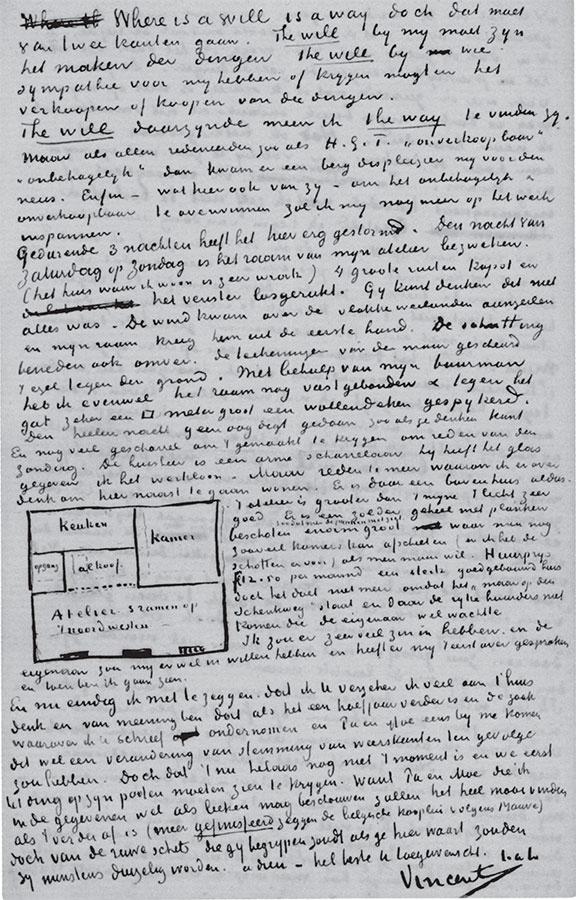 Where is a will is a way doch dat moet
van twee kanten gaan. The will by my moet zyn
het maken der dingen the will by wie
sympathie voor my hebben of krygen mogten het
verkoopen of koopen van die dingen.
The will daarzynde meen ik the way te vinden zy.
Maar als allen redeneerden zoo als H.G.T. "onverkoopbaar"
"onbehagelyk" dan kwam er een berg displeizier my voor den
neus. Enfin – wat hier ook van zy – om het onbehagelyk &
onverkoopbaar te overwinnen zal ik my nog meer op het werk
inspannen.
Gedurende 3 nachten heeft het hier erg gestormd. Den nacht van
Zaturdag op Zondag is het raam van myn atelier bezweken.
(het huis waar ik woon is zeer wrak) 4 groote ruiten kapot en
het venster losgerukt. Gy kunt denken dit niet
alles was. De wind kwam over de vlakke weilanden aanzeilen
en myn raam kreeg hem uit de eerste hand. De schutting
beneden ook omver. de teekeningen van de muur gescheurd
't ezel tegen den grond. Met behulp van myn buurman
heb ik evenwel het raam nog vastgebonden & tegen het
gat zeker een □ meter groot een wollen deken gespykerd.
Den heelen nacht geen oog digt gedaan zoo als ge denken kunt
En nog veel gescharrel om 't gemaakt te krygen om reden van den
zondag. De huisheer is een arme scharrelaar hy heeft het glas
gegeven ik het werkloon. Maar reden te meer waarom ik er over
denk om hier naast te gaan wonen. Er is daar een bovenhuis aldus.
't atelier is grooter dan 't myne 't licht zeer
goed Er is een zolder geheel met planken
beschoten
enorm groot waar men nog
zooveel kamers kan afschieten (en ik heb de
schotten er voor) als men maar wil. Huurprys
f 12.50 per maand een sterk goed gebouwd huis
doch het doet niet meer omdat het "maar op den
Schenkweg" staat en daar de ryke huurders niet
komen die de eigenaar wel wachtte
Keuken
Kamer
opgang
alkoof
Atelier 3 ramen op
't noordwesten
Ik zou er zeer veel zin in hebben. en de
eigenaar zou my er wel in willen hebben en heeft er my 't eerst over gesproken
en toen ben ik gaan zien.
En nu eindig ik met te zeggen dat ik U verzeker ik veel aan 't huis
denk en van meening ben dat als het een half jaar verder is en de zaak
waarover ik U schreef ondernomen en Pa en Moe eens by me komen
dit wel een verandering van stemming van weerskanten ten gevolge
zou hebben. Doch dat 't nu helaas nog niet 't moment is en we eerst
't ding op zyn pooten moeten zien te krygen. Want Pa en Moe die ik
in de gegeven wel als leeken mag beschouwen zullen het heel mooi vinden
als 't verder af is (meer gefinisseerd zeggen de belgische kooplui volgens Mauve)
doch van de ruwe schets die gy begrypen zoudt als ge hier waart zouden
zy minstens duizelig worden. adieu – het beste U toegewenscht. t. à t.
Vincent